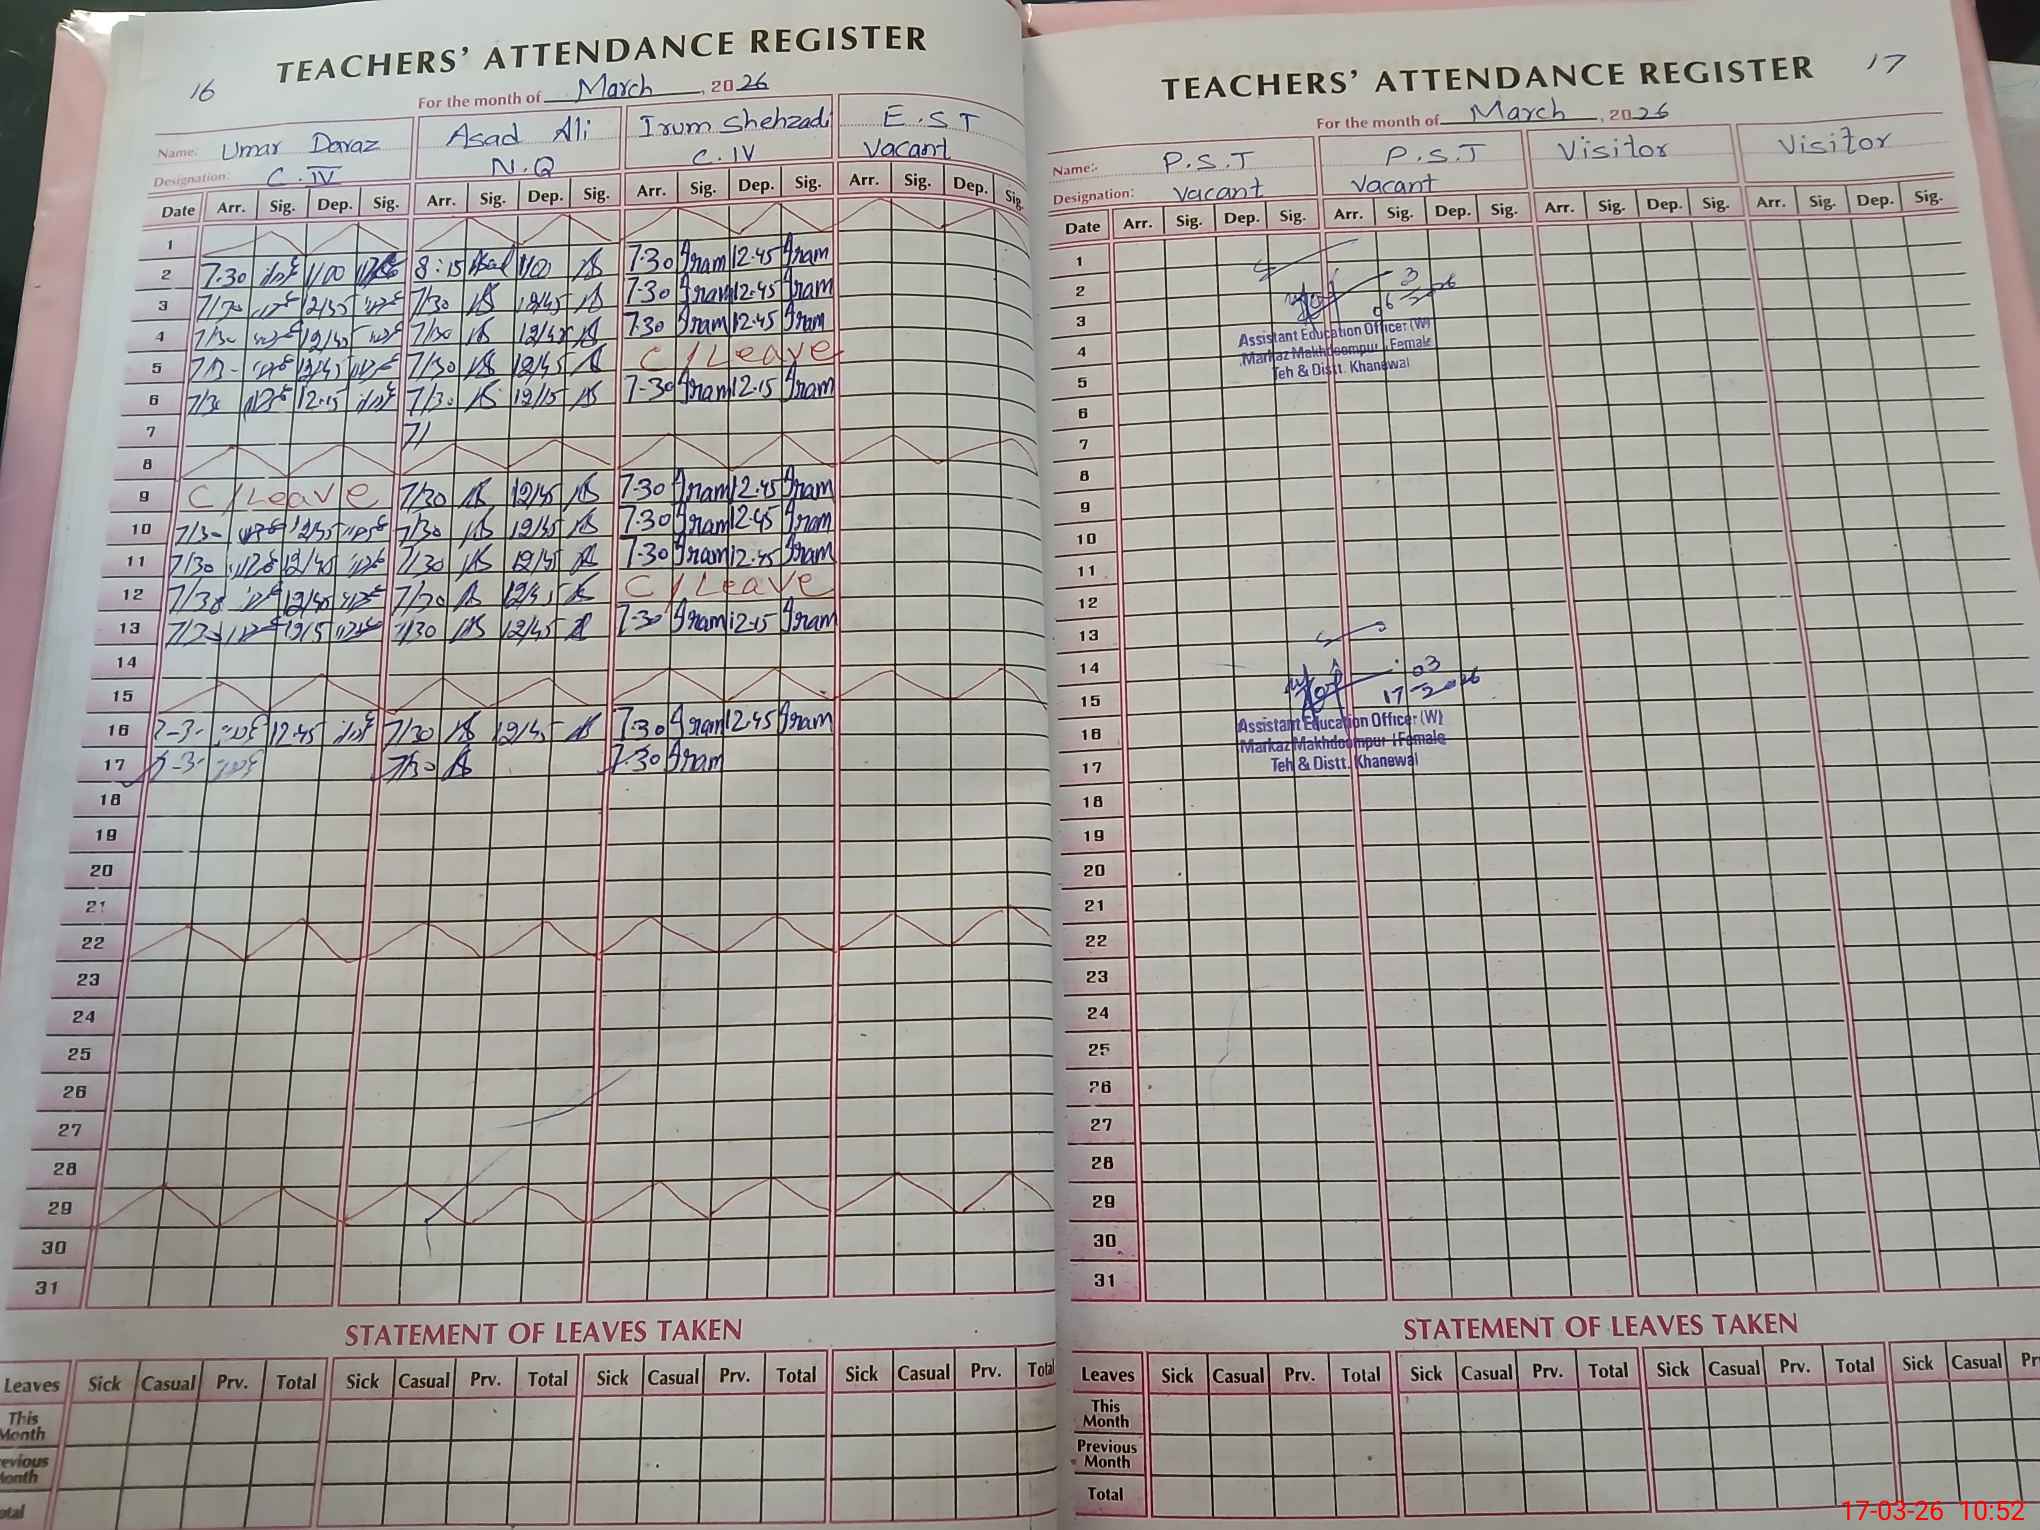 16
TEACHERS' ATTENDANCE REGISTER
For the month of March, 2026
Name: Umar Daraz Asad Ali Irum Shehzadi E.S.T
Designation: C.IV N.Q C.IV Vacant
Date Arr. Sig. Dep. Sig. Arr. Sig. Dep. Sig. Arr. Sig. Dep. Sig. Arr. Sig. Dep. Sig.
1
2 7.30 1/00 8:15 Asad 1/00 7.30 Iram 12.45 Iram
3 7/30 12/45 7/30 12/45 7.30 Iram 12.45 Iram
4 7/30 12/45 7/30 12/45 7.30 Iram 12.45 Iram
5 12/45 7/30 12/45 C/Leave
6 7/30 12.15 7/30 12/15 7-30 Iram 12.15 Iram
7 7/
8
9 C/Leave 7/30 12/45 7.30 Iram 12.45 Iram
10 7/30 12/45 7/30 12/45 7.30 Iram 12.45 Iram
11 7/30 12/45 7/30 12/45 7.30 Iram 12.45 Iram
12 7/30 12/45 7/30 12/45 C/Leave
13 7/30 12/15 7/30 12/45 7.30 Iram 12.15 Iram
14
15
16 12.45 7/30 12/45 7.30 Iram 12.45 Iram
17 7/30 7.30 Iram
18
19
20
21
22
23
24
25
26
27
28
29
30
31
STATEMENT OF LEAVES TAKEN
Leaves Sick Casual Prv. Total Sick Casual Prv. Total Sick Casual Prv. Total Sick Casual Prv. Total
This Month
evious Month
otal
TEACHERS' ATTENDANCE REGISTER 17
For the month of March, 2026
Name:- P.S.T P.S.T Visitor Visitor
Designation: Vacant Vacant
Date Arr. Sig. Dep. Sig. Arr. Sig. Dep. Sig. Arr. Sig. Dep. Sig. Arr. Sig. Dep. Sig.
1
2
3
4
5
6
7
8
9
10
11
12
13
14
15
16
17
18
19
20
21
22
23
24
25
26
27
28
29
30
31
Assistant Education Officer (W)
Markaz Makhdoompur I Female
Teh & Distt. Khanewal
Assistant Education Officer (W)
Markaz Makhdoompur I Female
Teh & Distt. Khanewal
STATEMENT OF LEAVES TAKEN
Leaves Sick Casual Prv. Total Sick Casual Prv. Total Sick Casual Prv. Total Sick Casual Pr
This Month
Previous Month
Total
17-03-26 10:52